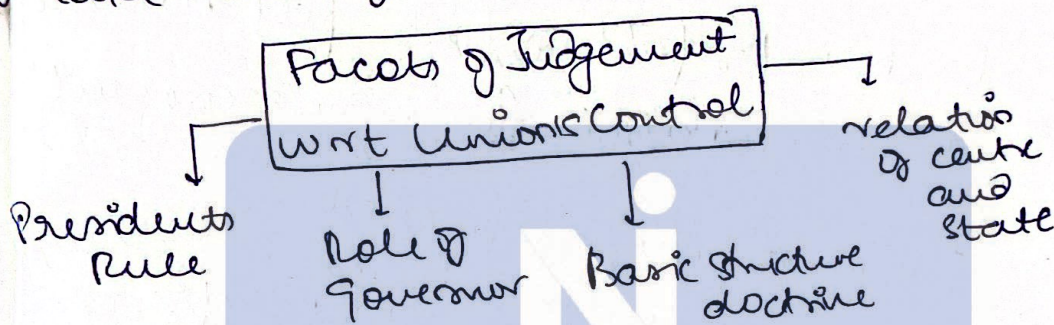 Facets of Judgement
wrt Union's Control
Presidents
Rule
Role of
Governor
Basic structure
doctrine
relation
of centre
and
state